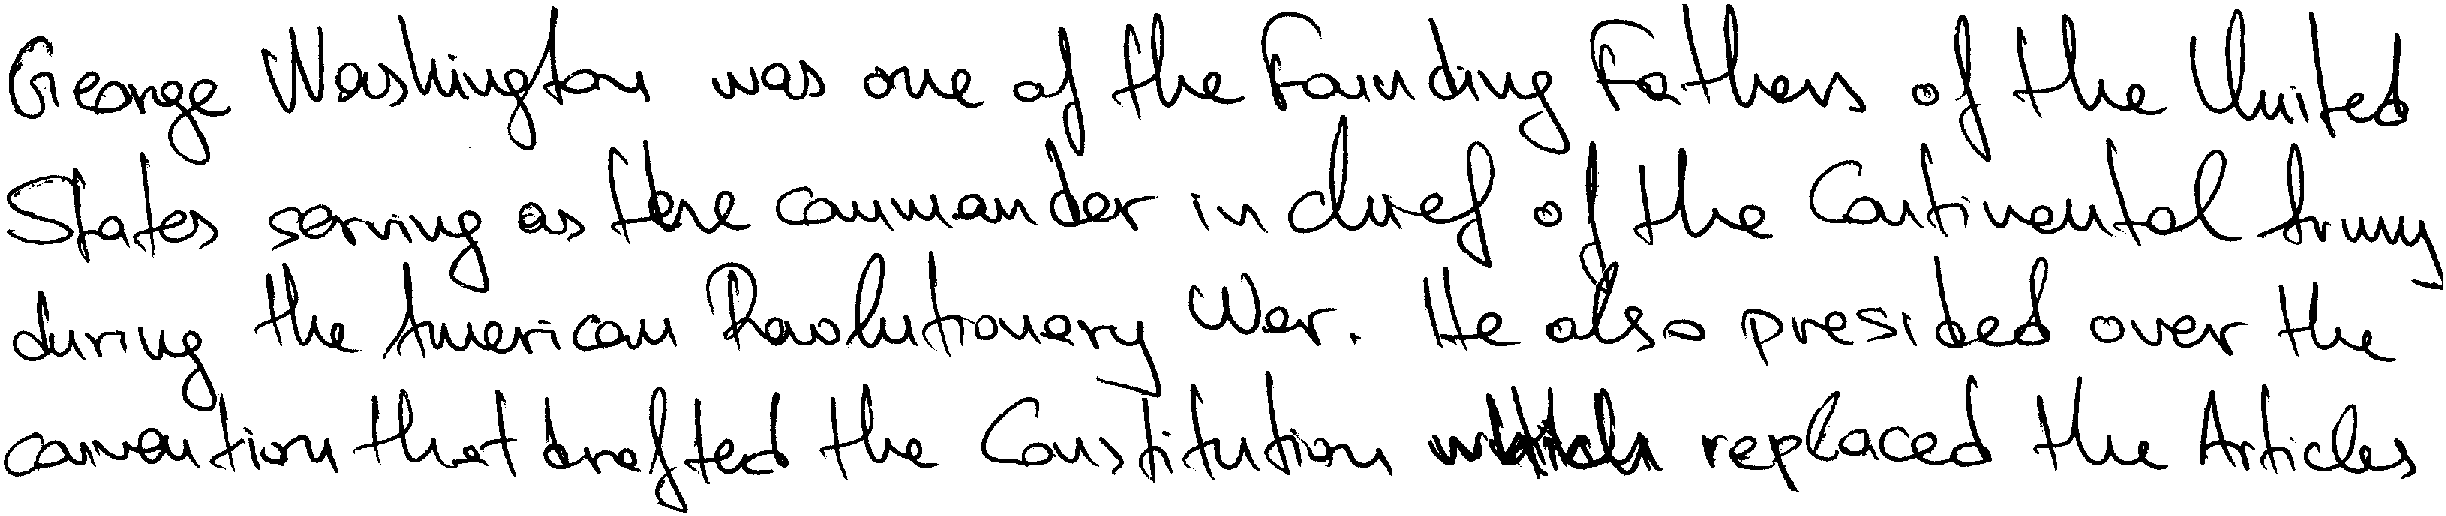 George Washington was one of the Founding Fathers of the United
States serving as the commander in chief of the Continental Army
during the American Revolutionary War. He also presided over the
convention that drafted the Constitution which replaced the Articles